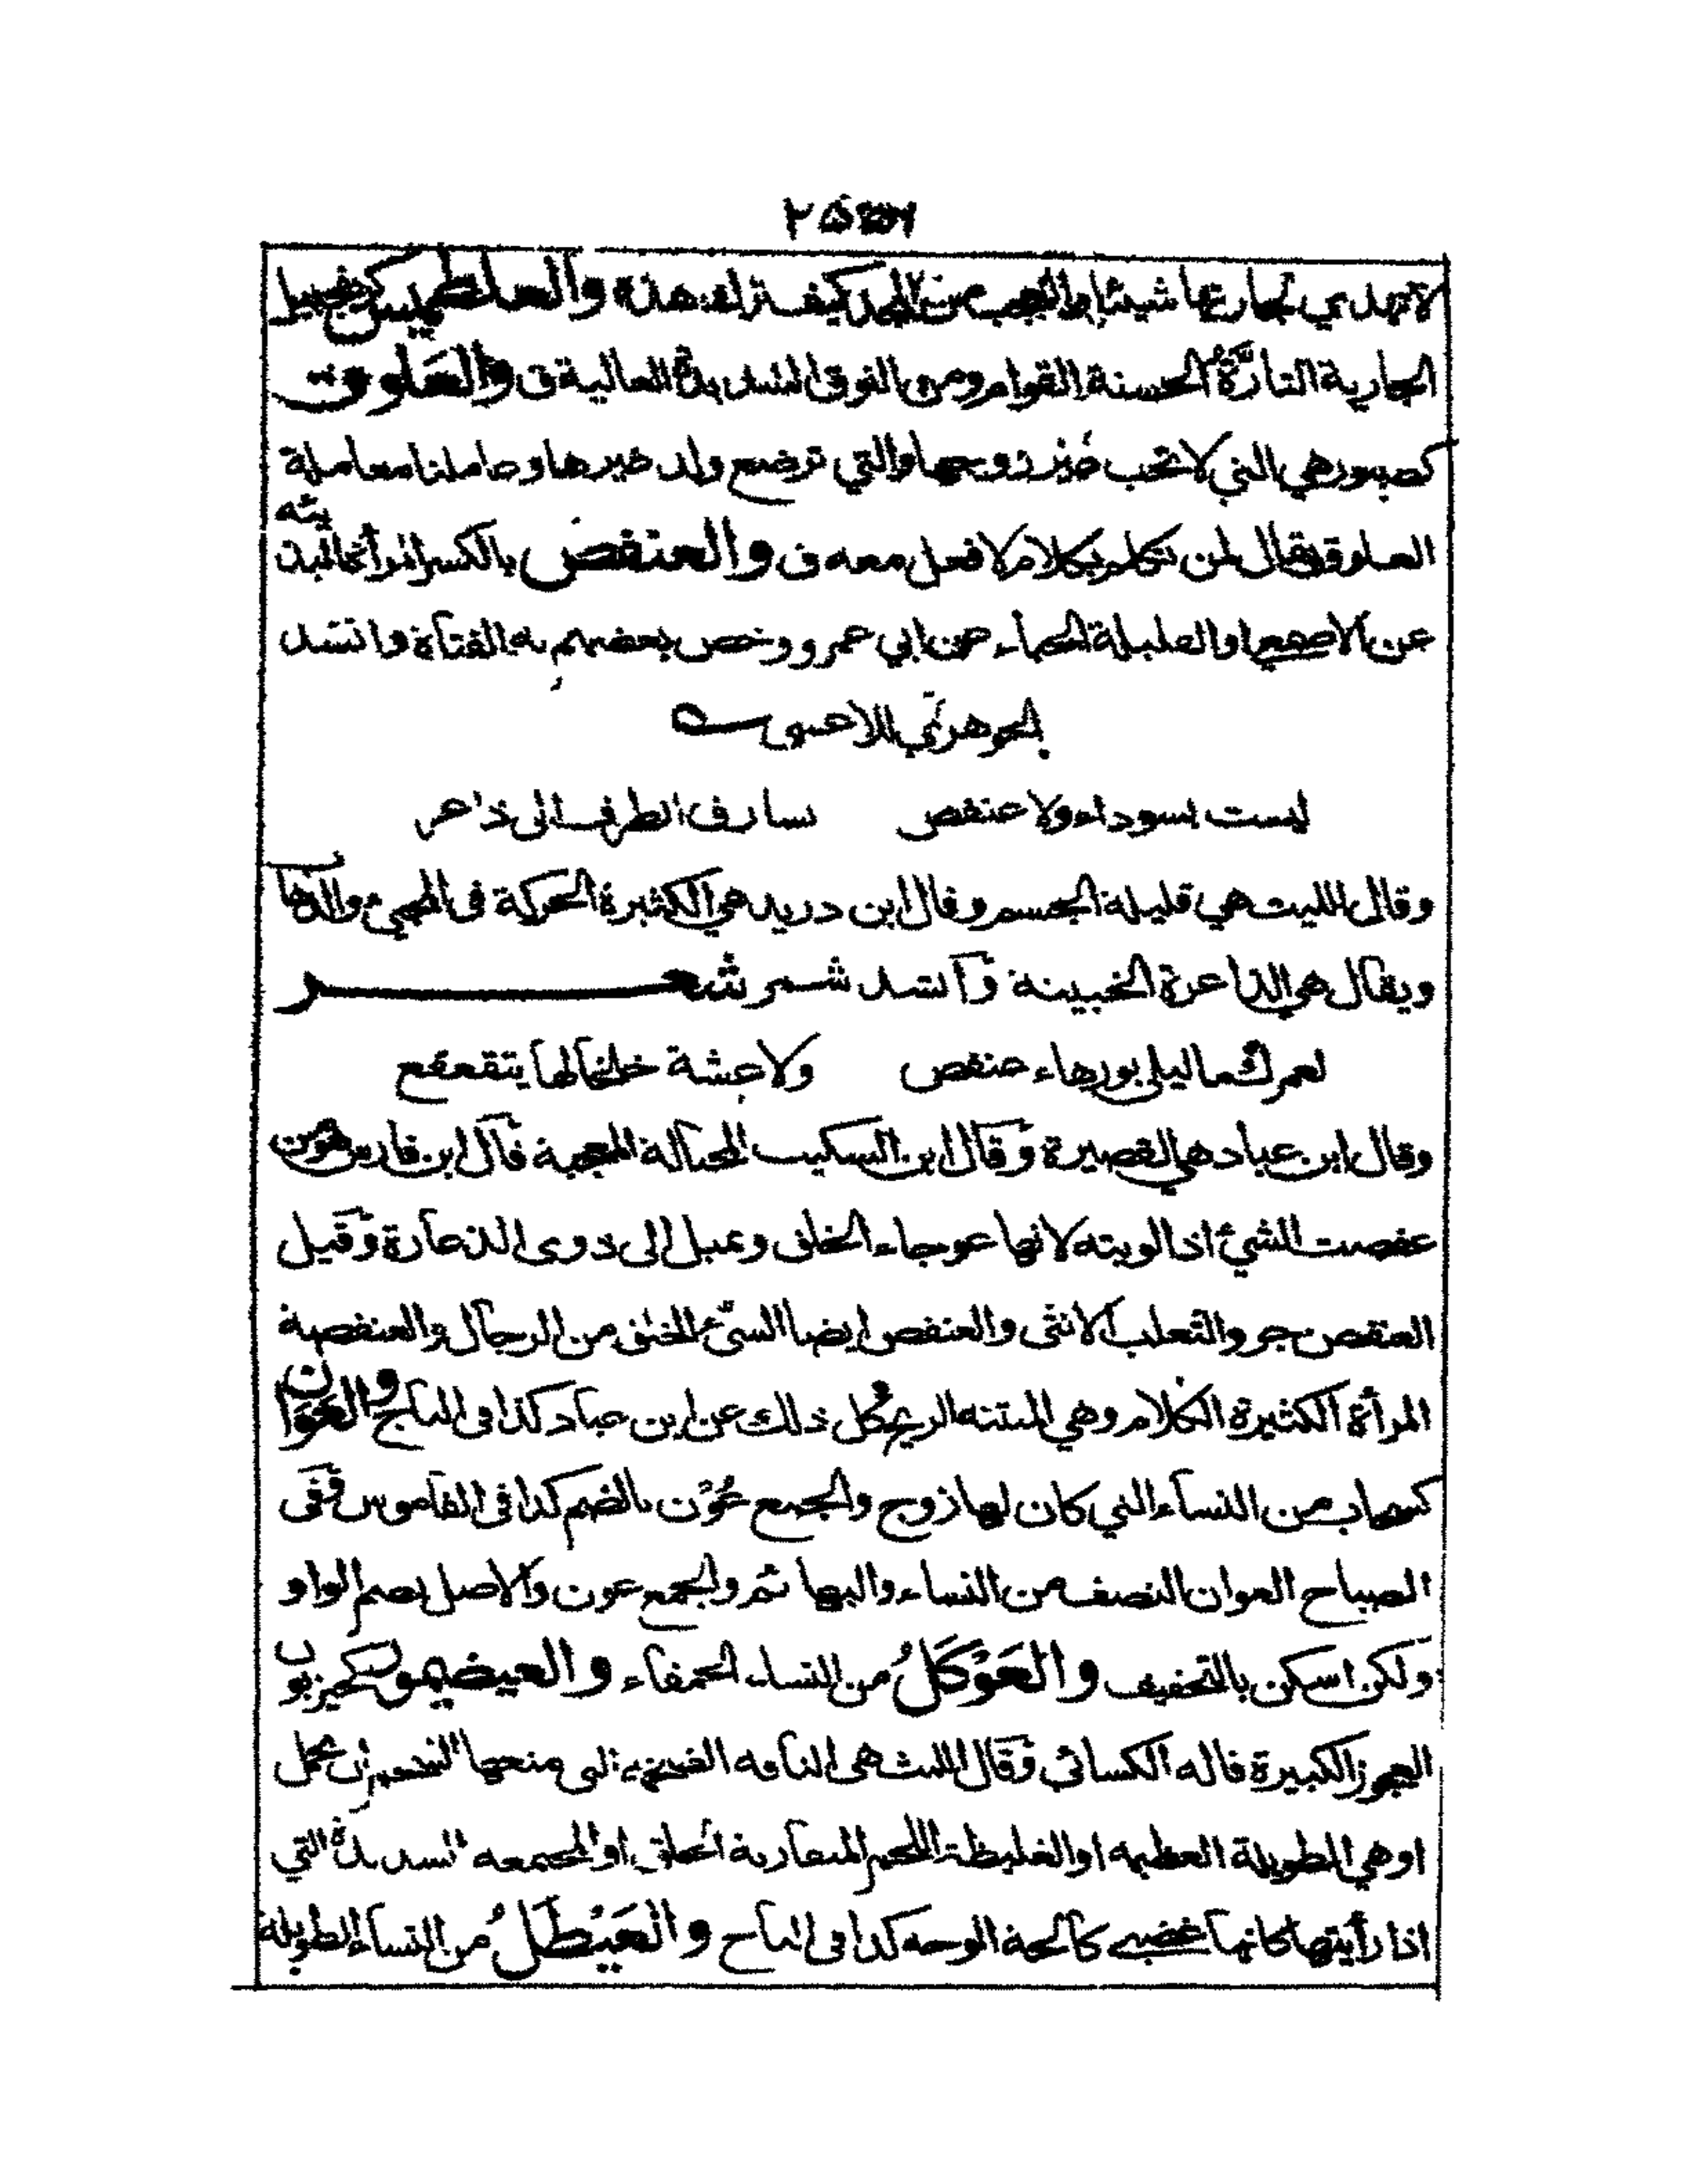 لا تهدي لجارتها شيئا والعجب من المجد كيف ترك هذه والعلطميس كزنجبيل
الجارية التارَّةُ الحسنة القوام ومن النوق الشديدة العالية ق والعَلوق
كصبور هي التي لا تحب غير زوجها والتي ترضع ولد غيرها وعاملنا معاملة
العلوق يقال لمن تكلم بكلام لا فعل معه ق والعنفص بالكسر المرأة البذيئة
عن الاصمعي او القليلة الحياء عن ابي عمرو وخص بعضهم به الفتاة وانشد
الجوهري للاعشى
ليست بسوداء ولا عنفص تسارق الطرف الى ذاعر
وقال الليث هي قليلة الجسم وقال ابن دريد هي الكثيرة الحركة في المجيء والذهاب
ويقال هي الذاعرة الخبيثة وانشد شمر شعر
لعمرك ما ليلى بورهاء عنفص ولا عشة خلخالها يتقعقع
وقال ابن عباد هي القصيرة وقال ابن السكيت المختالة المعجبة قال ابن فارس هو من
عفصت الشيء اذا لويته لانها عوجاء الخلق وتميل الى ذوى الذعارة وقيل
العنفص جرو الثعلب الانثى والعنفص ايضا السيّء الخلق من الرجال والعنفصة
المرأة الكثيرة الكلام وهي المنتنه الريح كل ذلك عن ابن عباد كذا في التاج والعَوَان
كسحاب من النساء التي كان لها زوج والجمع عُوْن بالضم كذا في القاموس وفى
المصباح العوان النصف من النساء والبهائم والجمع عون والاصل بضم الواو
ولكن اسكن بالتخفيف والعَوْكَلُ من النساء الحمقاء والعيضموز كحيزبون
العجوز الكبيرة قاله الكسائي وقال الليث هي الناقه الضخمة التي منعها الشحم ان تحمل
او هي الطويلة العظيمه او الغليظة اللحم المتقاربة الخلق او المجتمعه الشديدة التي
اذا رأيتها كانها غضبى كالحة الوجه كذا في التاج والعَيْطَلُ من النساء الطويلة